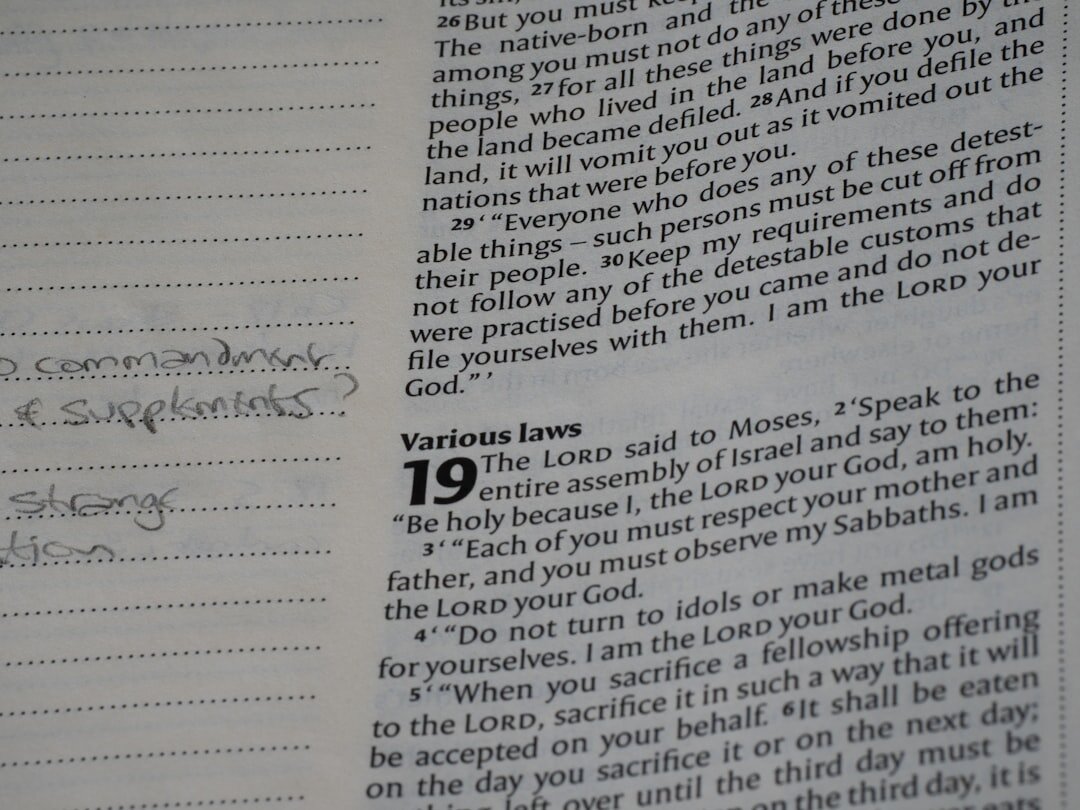 commandment
& supplements?
strange
tion
its sin,
26 But you must keep
The native-born and the
among you must not do any of these
things, 27 for all these things were done by the
people who lived in the land before you, and
the land became defiled. 28 And if you defile the
land, it will vomit you out as it vomited out the
nations that were before you.
29 ‘ “Everyone who does any of these detest-
able things – such persons must be cut off from
their people. 30 Keep my requirements and do
not follow any of the detestable customs that
were practised before you came and do not de-
file yourselves with them. I am the LORD your
God.” ’
Various laws
19 The LORD said to Moses, 2 ‘Speak to the
entire assembly of Israel and say to them:
“Be holy because I, the LORD your God, am holy.
3 ‘ “Each of you must respect your mother and
father, and you must observe my Sabbaths. I am
the LORD your God.
4 ‘ “Do not turn to idols or make metal gods
for yourselves. I am the LORD your God.
5 ‘ “When you sacrifice a fellowship offering
to the LORD, sacrifice it in such a way that it will
be accepted on your behalf. 6 It shall be eaten
on the day you sacrifice it or on the next day;
left over until the third day must be
on the third day, it is